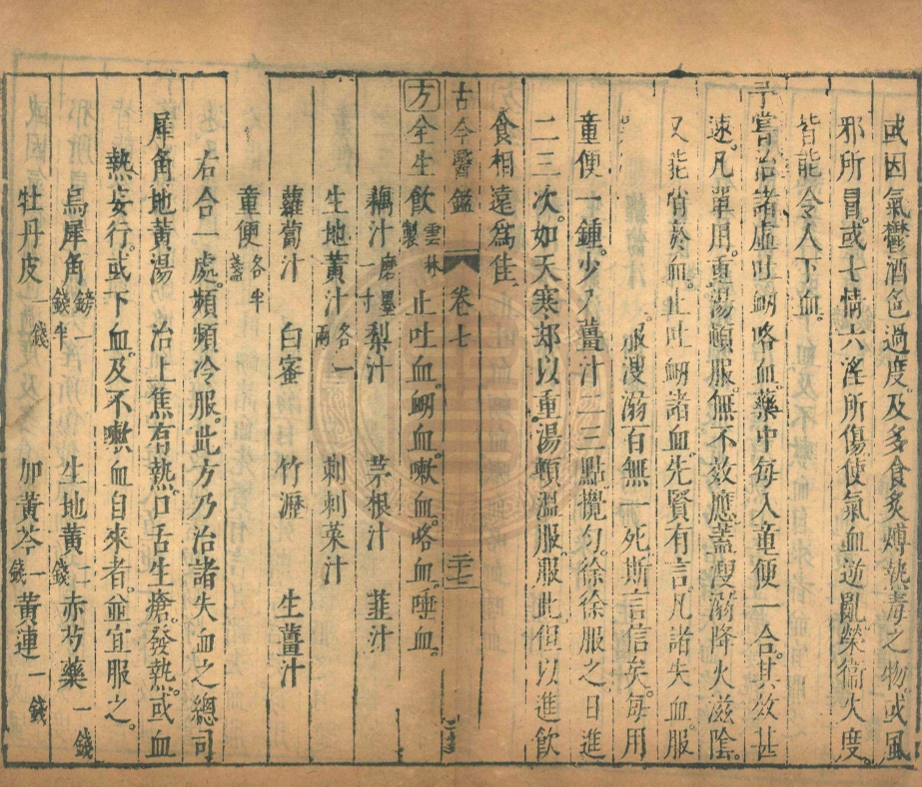 或因氣鬱酒色過度。及多食炙煿熱毒之物或風
邪所冒。或七情六淫所傷使氣血逆亂榮衞失度。
皆能令人下血。
予嘗治諸虛吐衂咯血藥中每入童便一合。其效甚
速。凡單用。重湯頓服無不效應蓋溲溺降火滋隂。
又能消於血。止吐衂諸血。先賢有言。凡諸失血。服
服溲溺百無一死斯言信矣。每用
童便一鍾。少入薑汁二三點攪勻。徐徐服之日進
二三次。如天寒却以重湯頓溫服。服此但以進飲
食相遠爲佳
古今醫鑑 卷七 二十七
方 全生飲 雲林製 止吐血。衂血。嗽血。咯血。唾血。
藕汁 磨墨一寸 梨汁 茅根汁 韮汁
生地黃汁 各一兩 刺刺菜汁
蘿蔔汁 白蜜 竹瀝 生薑汁
童便 各半盞
右合一處。頻頻冷服。此方乃治諸失血之總司
犀角地黃湯 治上焦有熱。口舌生瘡。發熱。或血
熱妄行。或下血。及不嗽血自來者。並宜服之。
烏犀角 鎊一錢半 生地黃 二錢 赤芍藥 一錢
牡丹皮 一錢 加黃芩 一錢 黃連 一錢